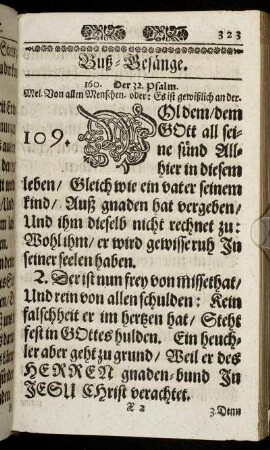 323
Buß-Gesänge.
160. Der 32. Psalm.
Mel. Von allen Menschen. oder: Es ist gewißlich an der.
109. WOl dem/dem
GOtt all sei-
ne sünd All-
hier in diesem
leben/ Gleich wie ein vater seinem
kind/ Auß gnaden hat vergeben/
Und ihm dieselb nicht rechnet zu:
Wohl ihm/ er wird gewisse ruh In
seiner seelen haben.
2. Der ist nun frey von missethat/
Und rein von allen schulden: Kein
falschheit er im hertzen hat/ Steht
fest in GOttes hulden. Ein heuch-
ler aber geht zu grund/ Weil er des
HERREN gnaden-bund In
JESU CHrist verachtet.
X 2
3. Denn